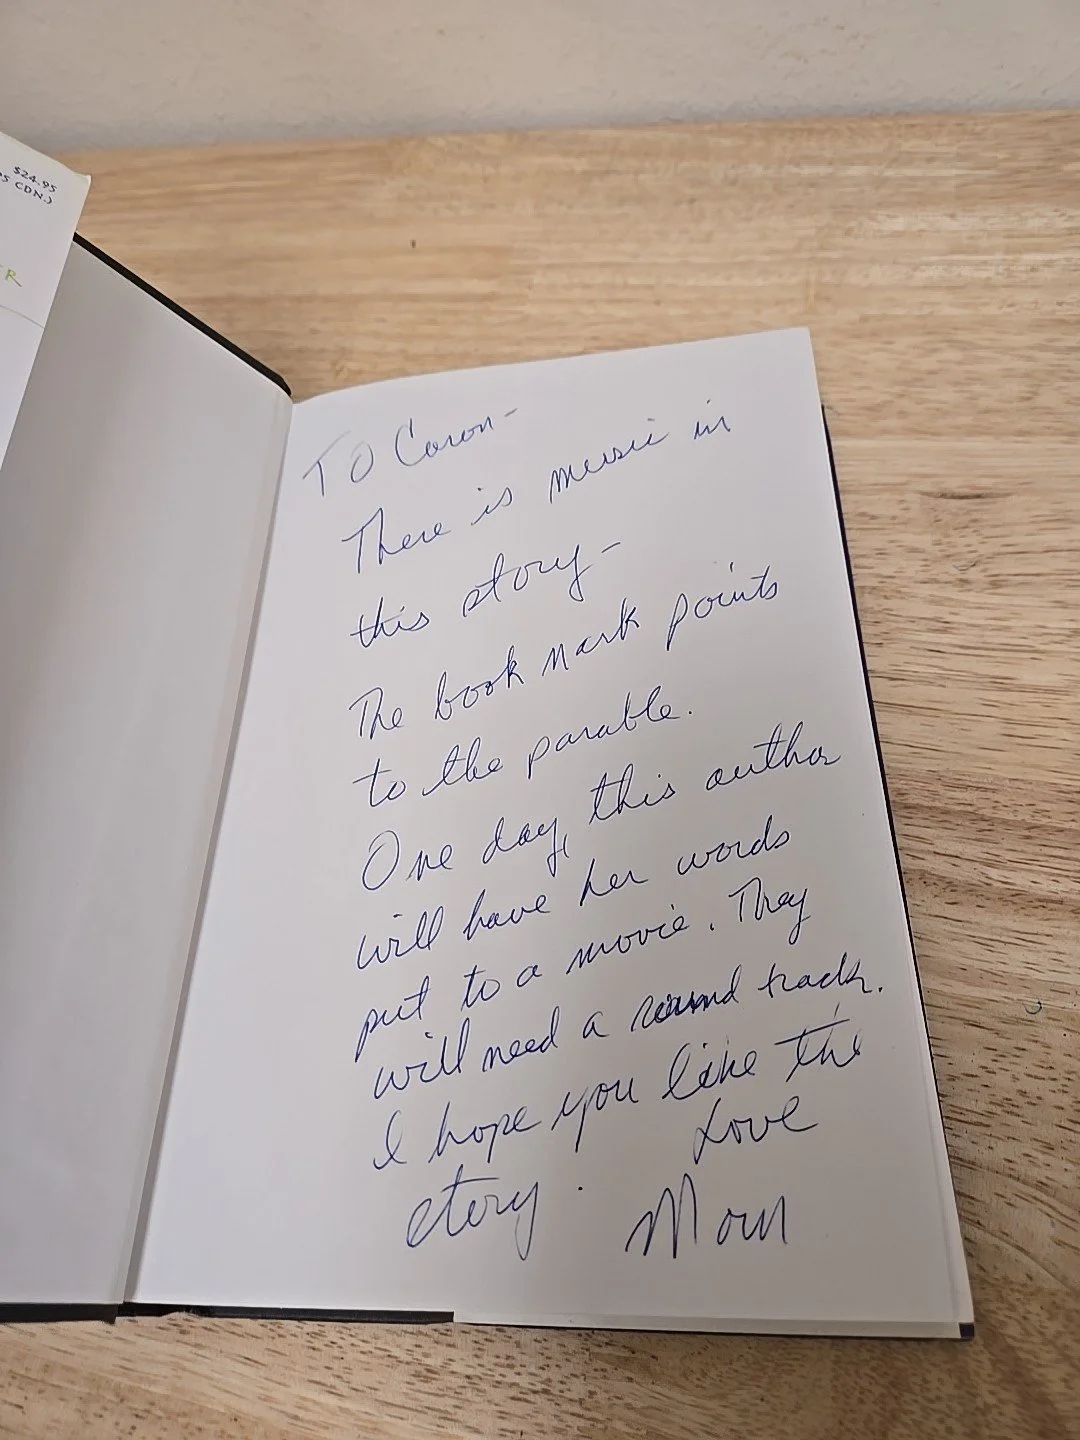 $24.95
5 CDN.)
R
TO Caron-
There is music in
this story-
The book mark points
to the parable.
One day, this author
will have her words
put to a movie. They
will need a sound track.
I hope you like the
story. Love
Mom